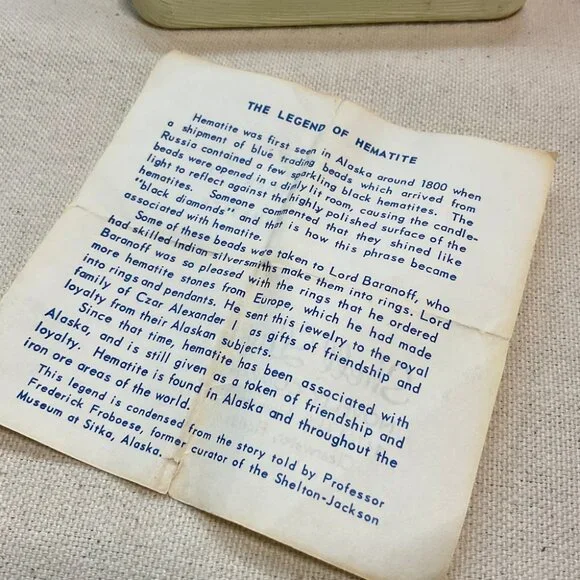 THE LEGEND OF HEMATITE
Hematite was first seen in Alaska around 1800 when
a shipment of blue trading beads which arrived from
Russia contained a few sparkling black hematites. The
beads were opened in a dimly lit room, causing the candle-
light to reflect against the highly polished surface of the
hematites. Someone commented that they shined like
"black diamonds" and that is how this phrase became
associated with hematite.
Some of these beads were taken to Lord Baranoff, who
had skilled Indian silversmiths make them into rings. Lord
Baranoff was so pleased with the rings that he ordered
more hematite stones from Europe, which he had made
into rings and pendants. He sent this jewelry to the royal
family of Czar Alexander I as gifts of friendship and
loyalty from their Alaskan subjects.
Since that time, hematite has been associated with
Alaska, and is still given as a token of friendship and
loyalty. Hematite is found in Alaska and throughout the
iron ore areas of the world.
This legend is condensed from the story told by Professor
Frederick Froboese, former curator of the Shelton-Jackson
Museum at Sitka, Alaska.